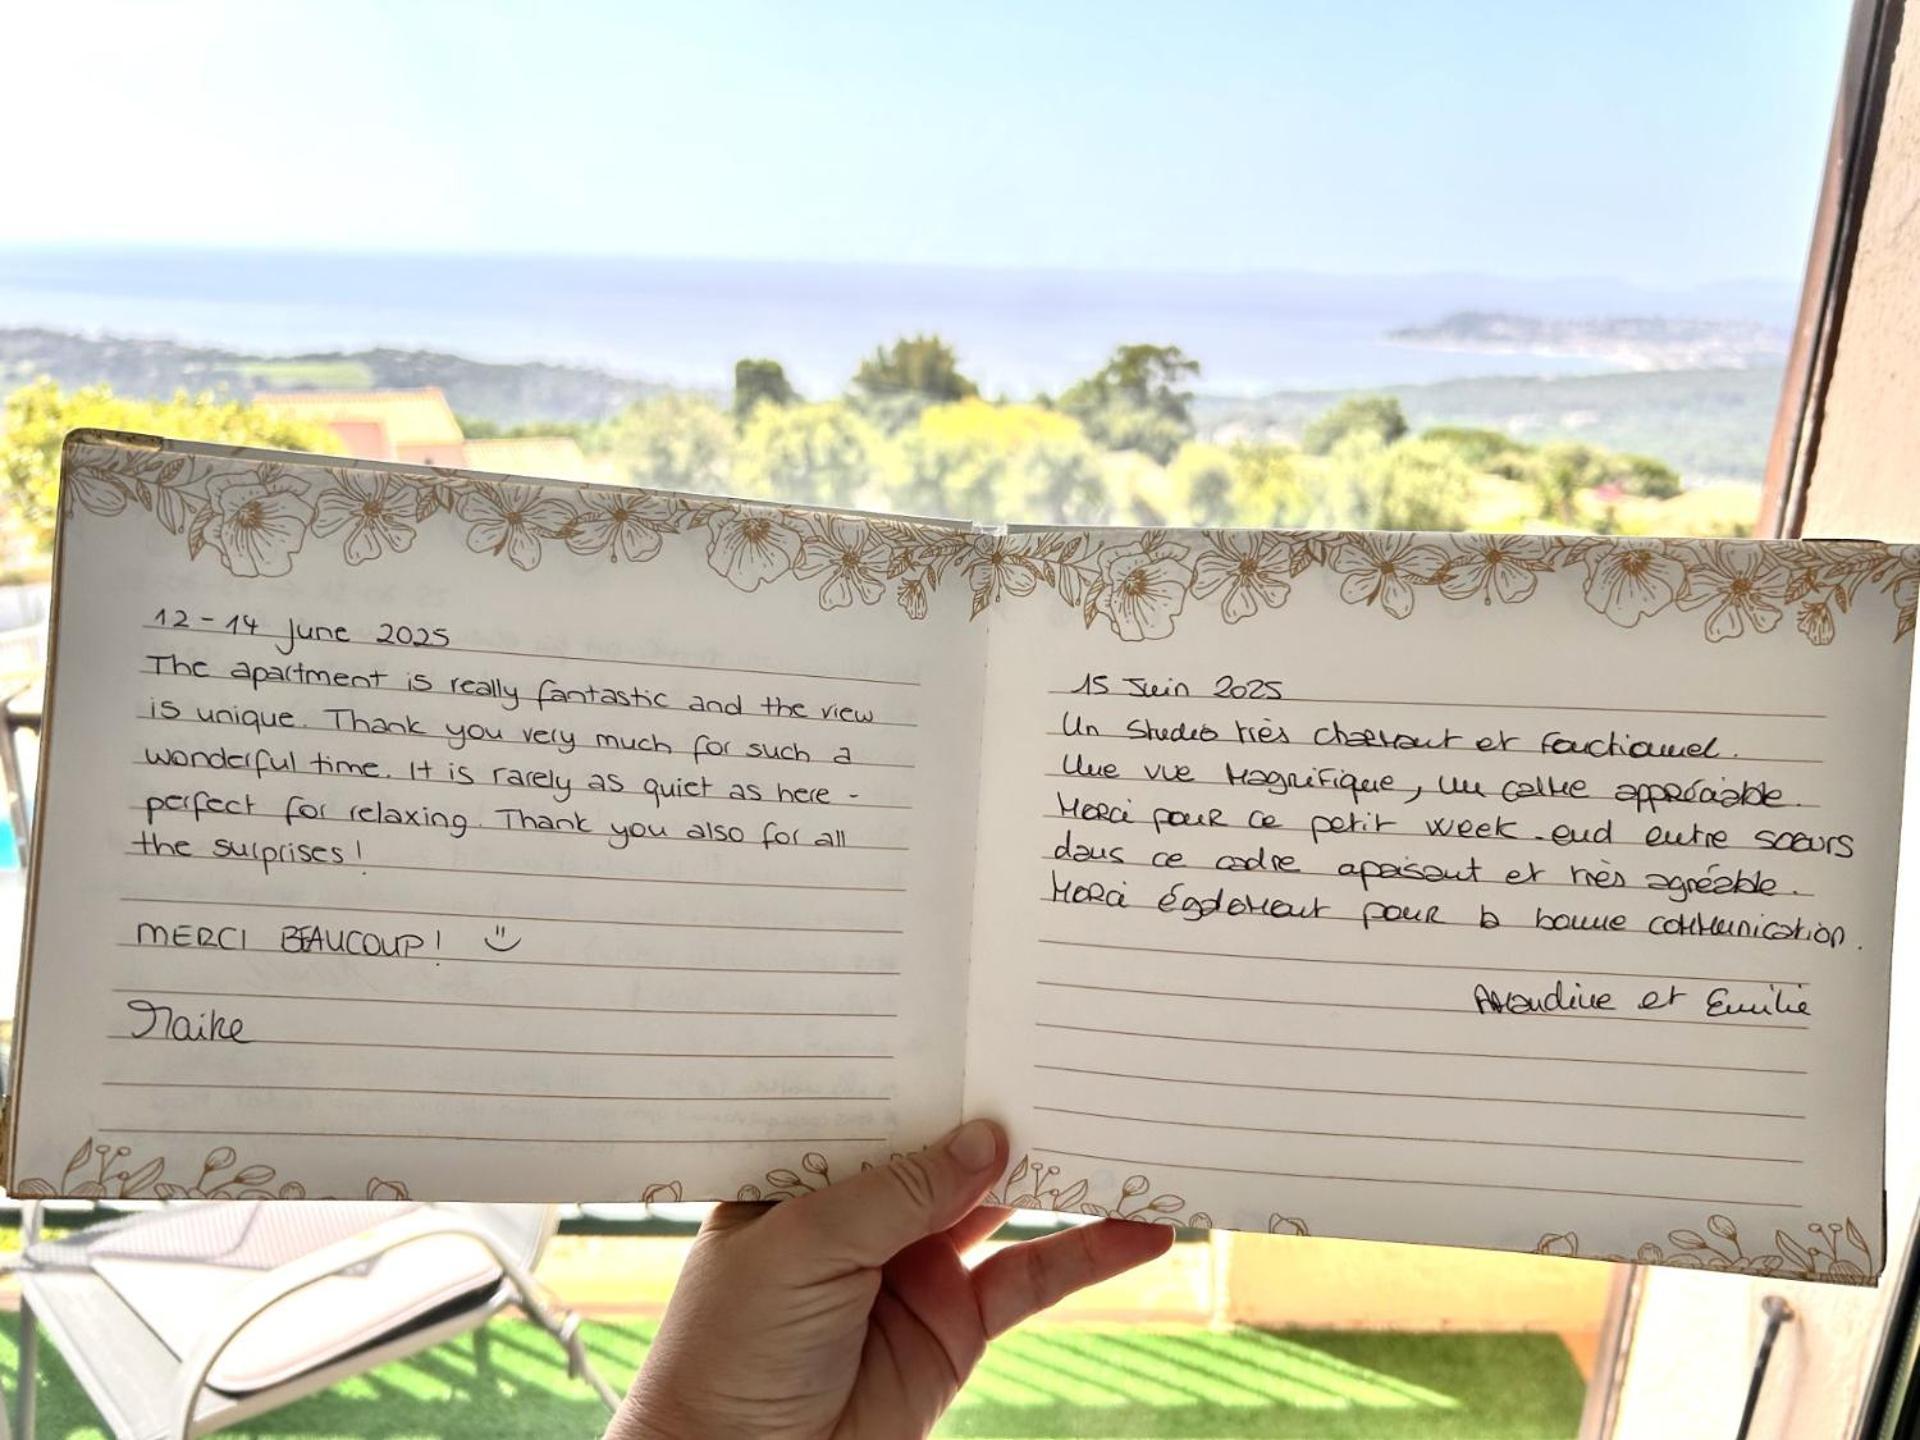 12 - 14 June 2025
The apartment is really fantastic and the view
is unique. Thank you very much for such a
wonderful time. It is rarely as quiet as here -
perfect for relaxing. Thank you also for all
the surprises!
MERCI BEAUCOUP!
Maike
15 Juin 2025
Un Studio très charmant et fonctionnel.
Une vue magnifique, un calme appréciable.
Merci pour ce petit week-end entre soeurs
dans ce cadre apaisant et très agréable.
Merci également pour la bonne communication.
Amandine et Emilie